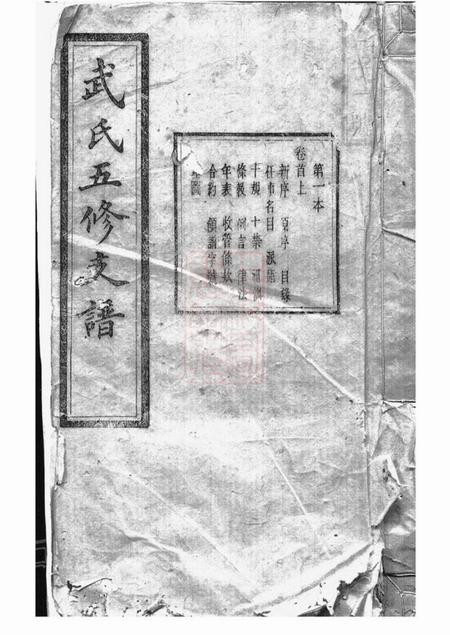 第一本
卷首上
新序 目錄
任事名目 派語
十規 十禁
條後 律法
年表 收管條款
合約 領譜字號
圖
武氏五修支譜